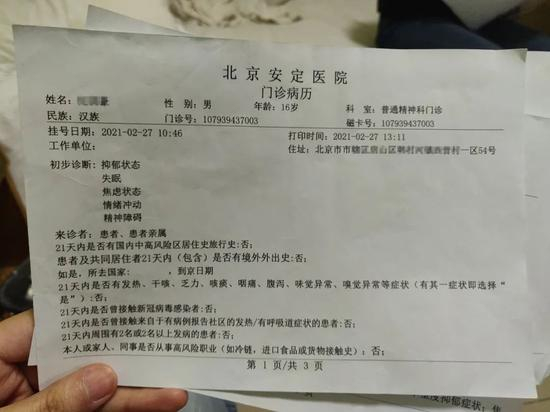 北京安定医院
门诊病历
姓名： 性 别：男 年龄：16岁 科 室：普通精神科门诊
民族：汉族 门诊号：107939437003 磁卡号：107939437003
挂号日期：2021-02-27 10:46 打印时间：2021-02-27 13:11
工作单位： 住址：北京市市辖区房山区韩村河镇 村一区54号
初步诊断：抑郁状态
失眠
焦虑状态
情绪冲动
精神障碍
来诊者：患者、患者亲属
21天内是否有国内中高风险区居住史旅行史:否;
患者及共同居住者21天内（包含）是否有境外外出史:否;
如是，所去国家： ，到京日期
21天内是否有发热、干咳、乏力、咳痰、咽痛、腹泻、味觉异常、嗅觉异常等症状（有其一症状即选择“
是”）:否;
21天内是否曾接触新冠病毒感染者:否;
21天内是否曾接触来自于有病例报告社区的发热/有呼吸道症状的患者:否;
21天内周围有2名或2名以上发病的患者:否;
本人或家人、同事是否从事高风险职业（如冷链，进口食品或货物接触史）：否;
第 1 页/共 3 页
度抑郁症状：焦